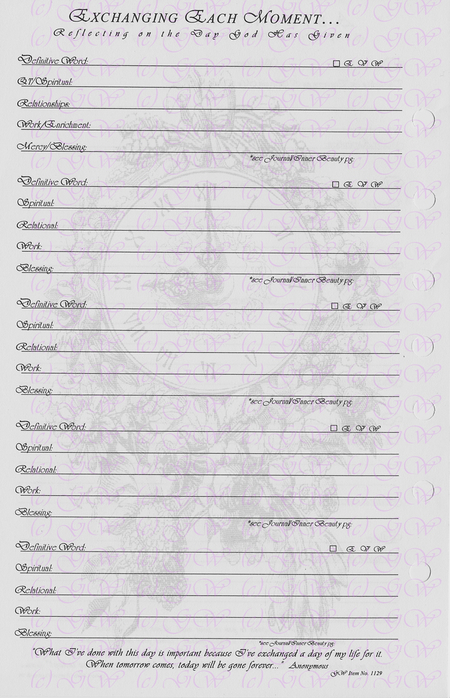 EXCHANGING EACH MOMENT...
Reflecting on the Day God Has Given
Definitive Word: □ E V W
QT/Spiritual:
Relationships:
Work/Enrichment:
Mercy/Blessing:
*see Journal/Inner Beauty pg.
Definitive Word: □ E V W
Spiritual:
Relational:
Work:
Blessing:
*see Journal/Inner Beauty pg.
Definitive Word: □ E V W
Spiritual:
Relational:
Work:
Blessing:
*see Journal/Inner Beauty pg.
Definitive Word: □ E V W
Spiritual:
Relational:
Work:
Blessing:
*see Journal/Inner Beauty pg.
Definitive Word: □ E V W
Spiritual:
Relational:
Work:
Blessing:
*see Journal/Inner Beauty pg.
"What I've done with this day is important because I've exchanged a day of my life for it.
When tomorrow comes, today will be gone forever..." Anonymous
GW Item No. 1129